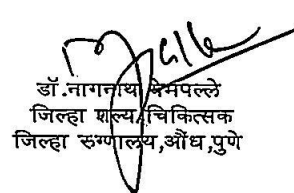 डॉ.नागनाथ यमपल्ले
जिल्हा शल्य चिकित्सक
जिल्हा रुग्णालय,औंध,पुणे